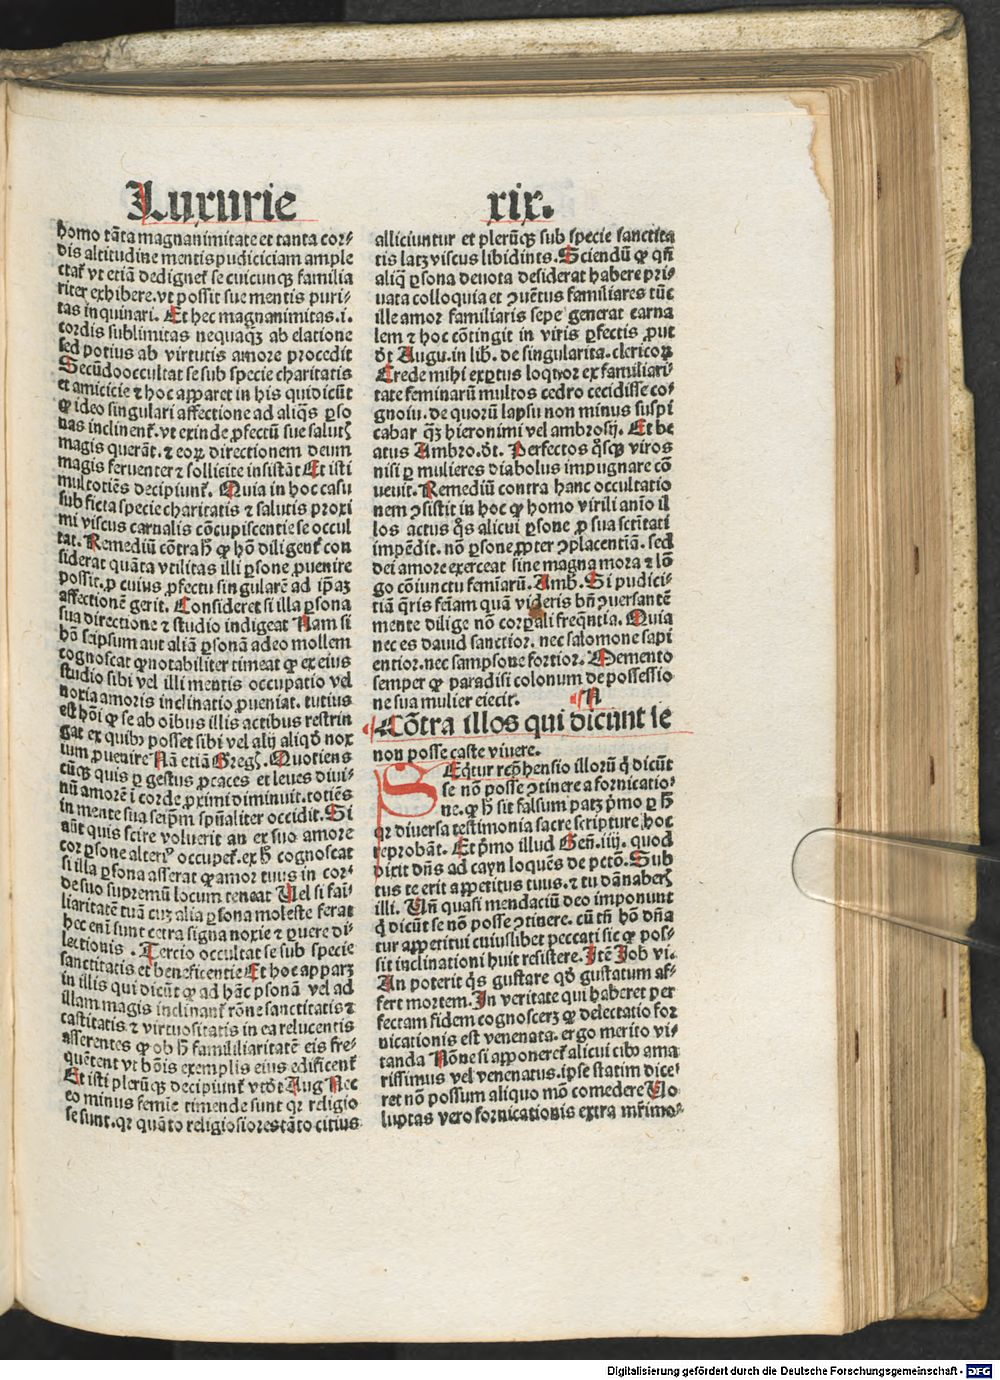 Luxurie
xix.
homo tãta magnanimitate et tanta cor⸗
dis altitudine mentis pudiciciam ample
ctat̃ vt etiã dedignet̃ se cuicunqꝫ familia
riter exhibere. vt possit sue mentis puri⸗
tas inquinari. Et hec magnanimitas .i.
cordis sublimitas nequaqꝫ ab elatione
sed potius ab virtutis amore procedit
Secũdo occultat se sub specie charitatis
et amicicie ⁊ hoc apparet in his qui dicũt
ꝙ ideo singulari affectione ad aliq̃s ꝑso
nas inclinent̃. vt exinde ꝓfectũ sue salutꝭ
magis querãt. ⁊ eoꝝ directionem deum
magis feruenter ⁊ sollicite insistãt Et isti
multotiẽs decipiunt̃. Quia in hoc casu
sub ficta specie charitatis ⁊ salutis proxi
mi viscus carnalis cõcupiscentie se occul
tat. Remediũ cõtra hꝰ ꝙ hõ diligent̃ con
siderat quãta vtilitas illi ꝑsone ꝓuenire
possit. ꝓ cuius ꝓfectu singularẽ ad ip̃aꝫ
affectionẽ gerit. Consideret si illa ꝑsona
sua directione ⁊ studio indigeat Nam si
hõ seipsum aut aliã ꝑsonã adeo mollem
cognoscat ꝙ notabiliter timeat ꝙ ex eius
studio sibi vel illi mentis occupatio vel
noxia amoris inclinatio ꝓueniat. tutius
est hõi ꝙ se ab oĩbus illis actibus restrin
gat ex quibꝰ posset sibi vel alij aliqð nox
ium ꝓuenire Nã etiã Gregꝭ. Quotiens
cũqꝫ quis ꝑ gestus ꝓcaces et leues diui⸗
nũ amorẽ ĩ corde ꝓximi diminuit. totiẽs
in mente sua seip̃m spũaliter occidit. Si
aũt quis scire voluerit an ex suo amore
cor ꝑsone alteriꝰ occupet̃. ex hꝰ cognoscat
si illa ꝑsona asserat ꝙ amor tuus in cor⸗
de suo supremũ locum teneat Uel si fami⸗
liaritatẽ tuã cuꝫ alia ꝑsona moleste ferat
hec eni sunt cetra signa noxie ⁊ ꝑuere di⸗
lectionis . Tercio occultat se sub specie
sanctitatis et beneficentie Et hoc apparꝫ
in illis qui dicũt ꝙ ad hãc ꝑsonã vel ad
illam magis inclinant̃ rõne sanctitatis ⁊
castitatis ⁊ virtuositatis in ea relucentis
asserentes ꝙ ob hꝰ famililiaritatẽ eis fre⸗
quẽtent vt bõis exemplis eius edificent̃
Et isti plerũqꝫ decipiunt̃ vt dt Aug Nec
eo minus femie timende sunt qꝛ religio
se sunt. qꝛ quãto religiosiores tãto citius
alliciuntur et plerũqꝫ sub specie sanctita
tis latꝫ viscus libidints. Sciendũ ꝙ qñ
aliq̃ ꝑsona deuota desiderat habere pri⸗
uata colloquia et ꝯuẽtus familiares tũc
ille amor familiaris sepe generat carna
lem ⁊ hoc cõtingit in viris ꝑfectis ꝓut
dt Augu. in lib. de singularita. clericoꝝ
Crede mihi exꝑtus loquor ex familiari⸗
tate feminarũ multos cedro cecidisse co⸗
gnoui. de quorũ lapsu non minus suspi
cabar qꝫ hieronimi vel ambrosij. Et be
atus Ambro. dt. Perfectos q̃sqꝫ viros
nisi ꝑ mulieres diabolus impugnare cõ
ueuit. Remediũ contra hanc occultatio
nem ꝯsistit in hoc ꝙ homo virili anio il
los actus q̃s alicui ꝑsone ꝓ sua sctitati
impẽdit. nõ ꝑsone ꝓpter ꝯplacentiã. sed
dei amore exerceat sine magna mora ⁊ lõ
go cõiunctu femiarũ. Amb. Si pudici⸗
tiã q̃ris feiam quã videris bñ ꝯuersantẽ
mente dilige nõ corꝑali freq̃ntia. Quia
nec es dauid sanctior. nec salomone sapi
entior. nec sampsone fortior. Memento
semper ꝙ paradisi colonum de possessio
ne sua mulier eiecit. N
Cõtra illos qui dicunt se
non posse caste viuere.
SEq̃tur rep̃hensio illorũ q̃ dicũt
se nõ posse ꝯtinere a fornicatio⸗
ne. ꝙ hꝰ sit falsum patꝫ p̃mo ꝑ hꝰ
qꝛ diuersa testimonia sacre scripture hoc
reprobãt. Et p̃mo illud Geñ. iiij. quod
dixit dñs ad cayn loquẽs de pctõ. Sub
tus te erit appetitus tuus. ⁊ tu dãnaberꝭ
illi. Uñ quasi mendaciũ deo imponunt
q̃ dicũt se nõ posse ꝯtinere. cũ tñ hõ dña
tur appetitui cuiuslibet peccati sic ꝙ pos⸗
sit inclinationi huit resistere. Itẽ Job vi.
An poterit q̃s gustare qð gustatum af⸗
fert mortem. In veritate qui haberet per
fectam fidem cognoscerꝫ ꝙ delectatio for
nicationis est venenata. ergo merito vi⸗
tanda Nõne si apponeret̃ alicui cibꝰ ama
rissimus vel venenatus. ipse statim dice⸗
ret nõ possum aliquo mõ comedere Uo
luptas vero fornicationis extra mr̃imo⸗
Digitalisierung gefördert durch die Deutsche Forschungsgemeinschaft - DFG